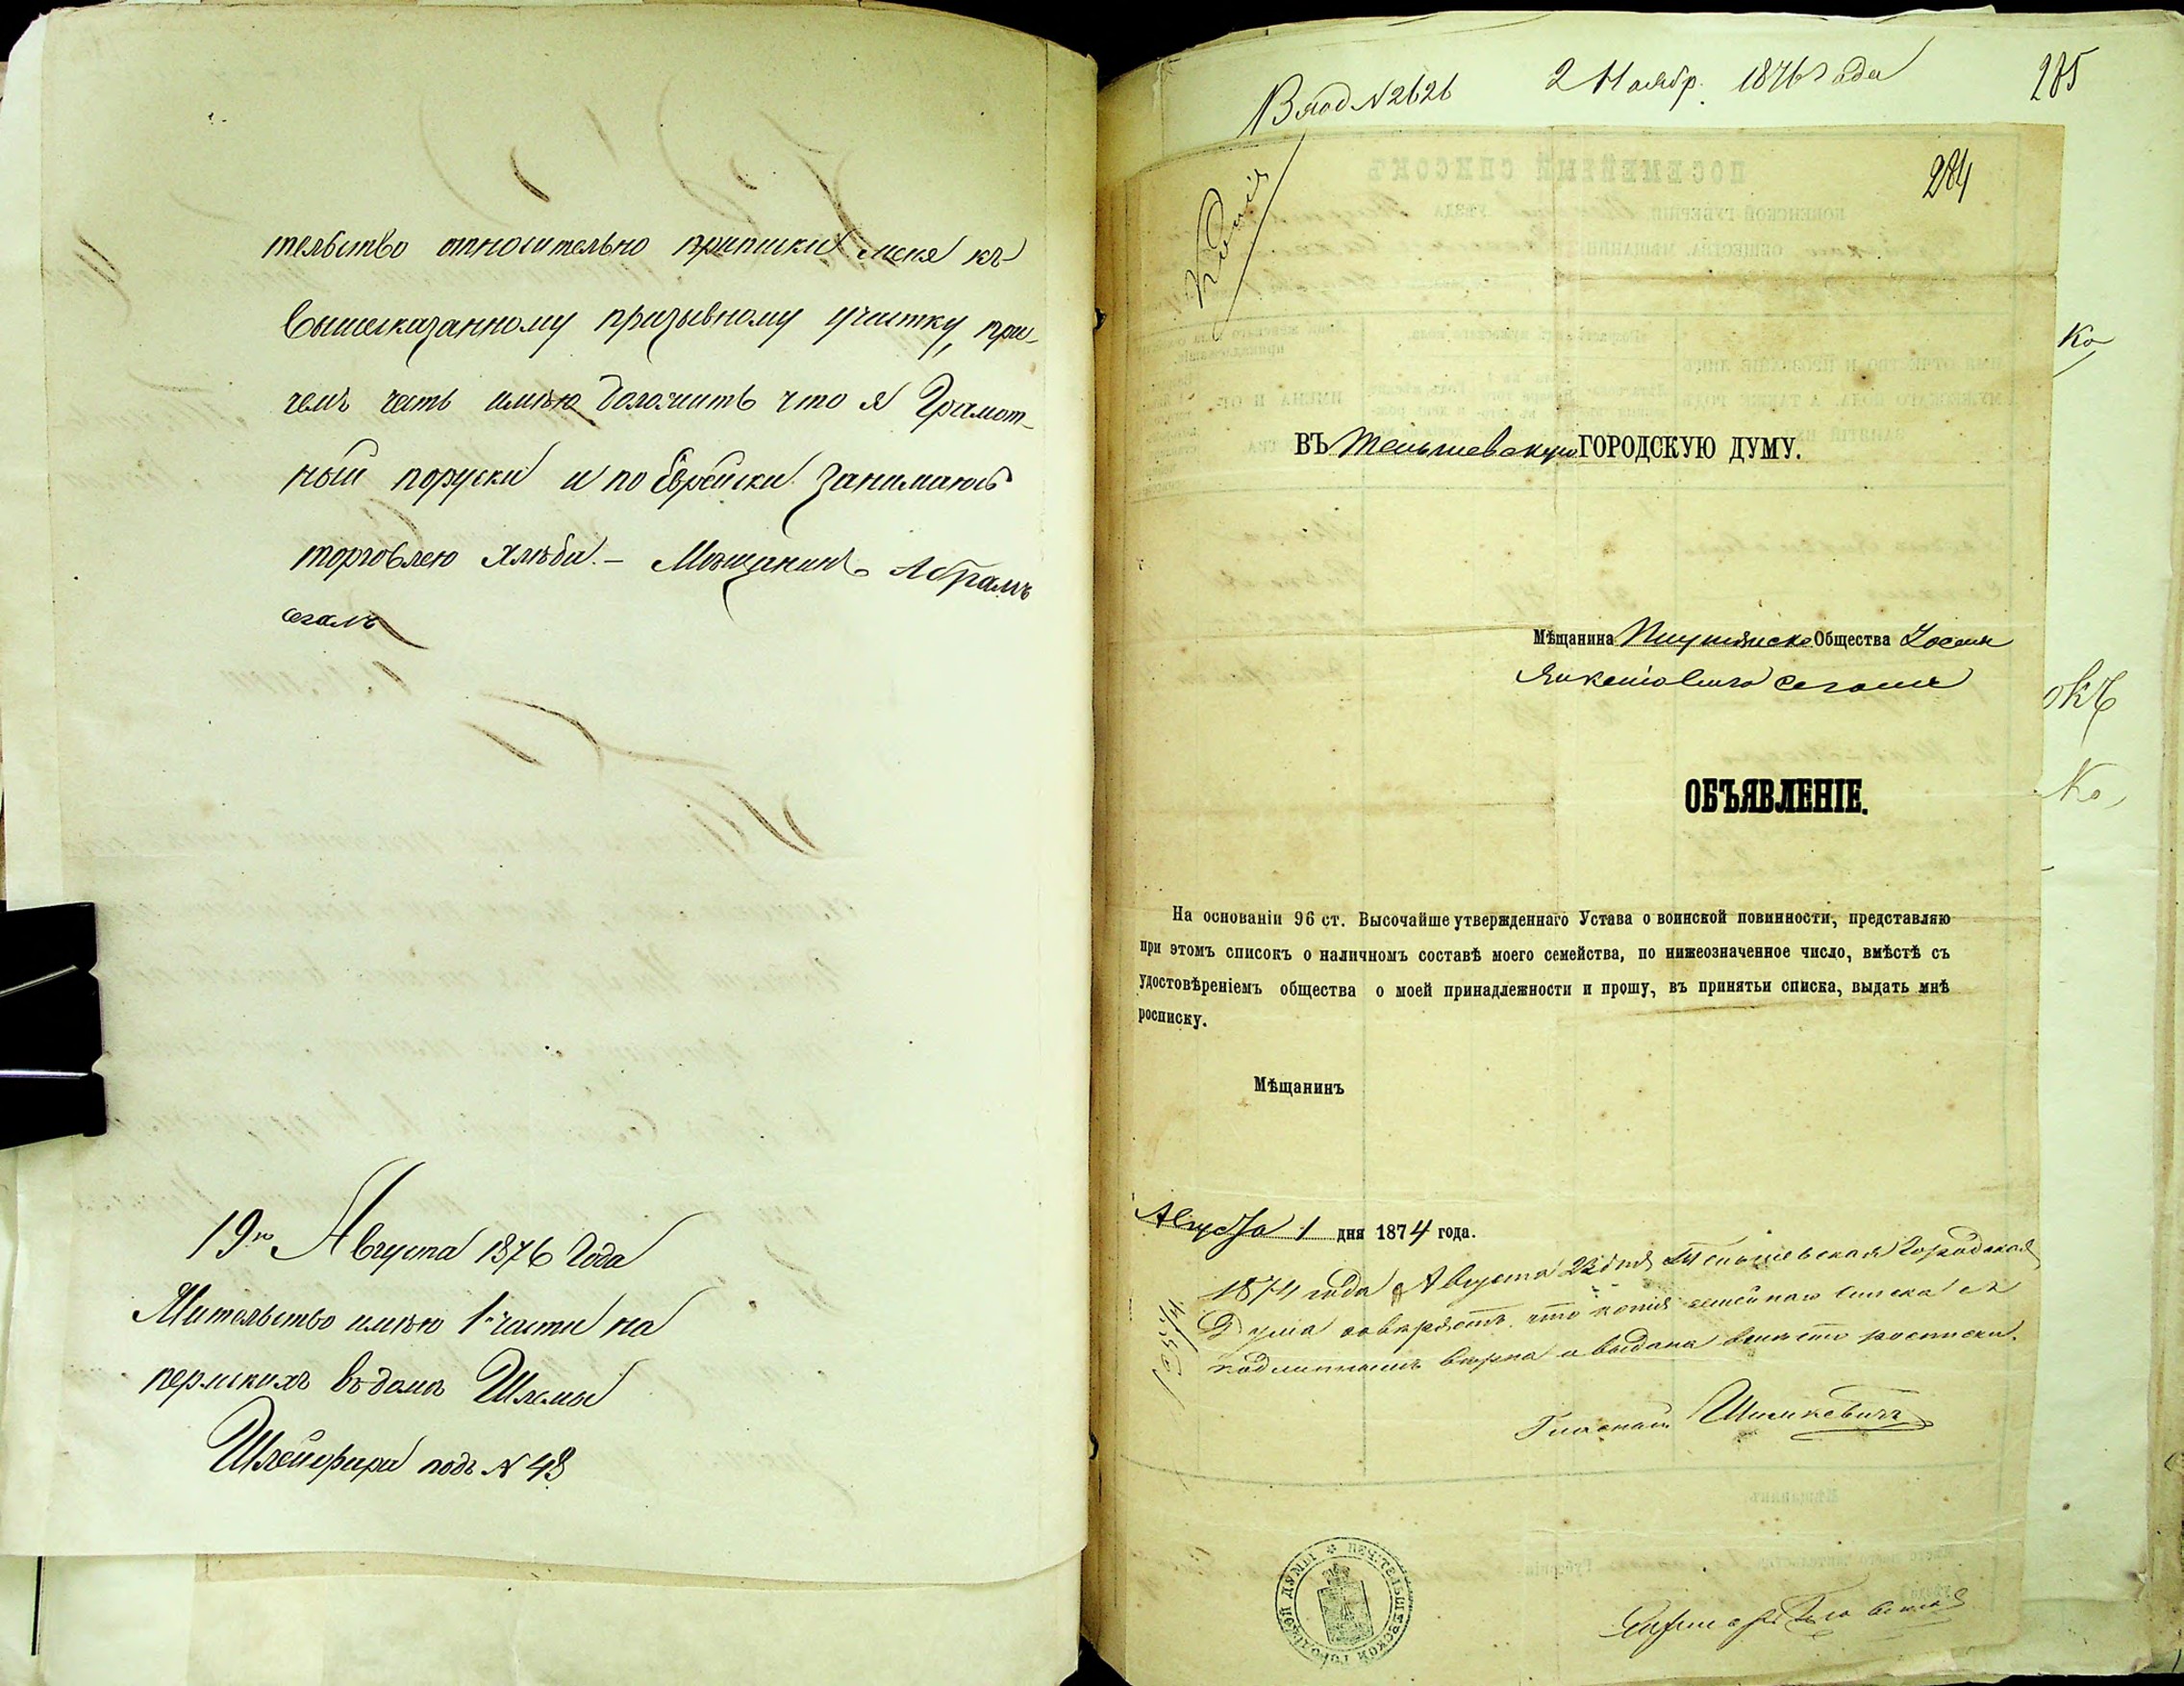 тельство относительно приписки меня къ
вышесказанному призывному участку, при-
чемъ честь имѣю доложить что я Грамот-
ный поруски и по Еврейски занимаюсь
торговлею хлѣба. – Мѣщанинъ Абрамъ
сегалъ
19го Августа 1876 Года
Жительство имѣю 1 части на
перскихъ въ домѣ Шлемы
подъ N 48
Вход N 2626 2 Ноябр. 1876 года 285
284
Копія
ВЪ Тельшевскую ГОРОДСКУЮ ДУМУ.
Мѣщанина Общества
Сегала
ОБЪЯВЛЕНІЕ.
На основаніи 96 ст. Высочайше утвержденнаго Устава о воинской повинности, представляю
при этомъ списокъ о наличномъ составѣ моего семейства, по нижеозначенное число, вмѣстѣ съ
удостовѣреніемъ общества о моей принадлежности и прошу, въ принятьи списка, выдать мнѣ
росписку.
Мѣщанинъ
Августа 1 дня 1874 года.
1874 года Августа 22 дня Тельшевская Городская
Дума что копія семейнаго списка съ
подлиннымъ вѣрна и выдана вмѣсто росписки.
Гласный Шимкевичъ
ПЕЧ. ТЕЛЬШЕВСКОЙ ГОРОДСКОЙ ДУМЫ